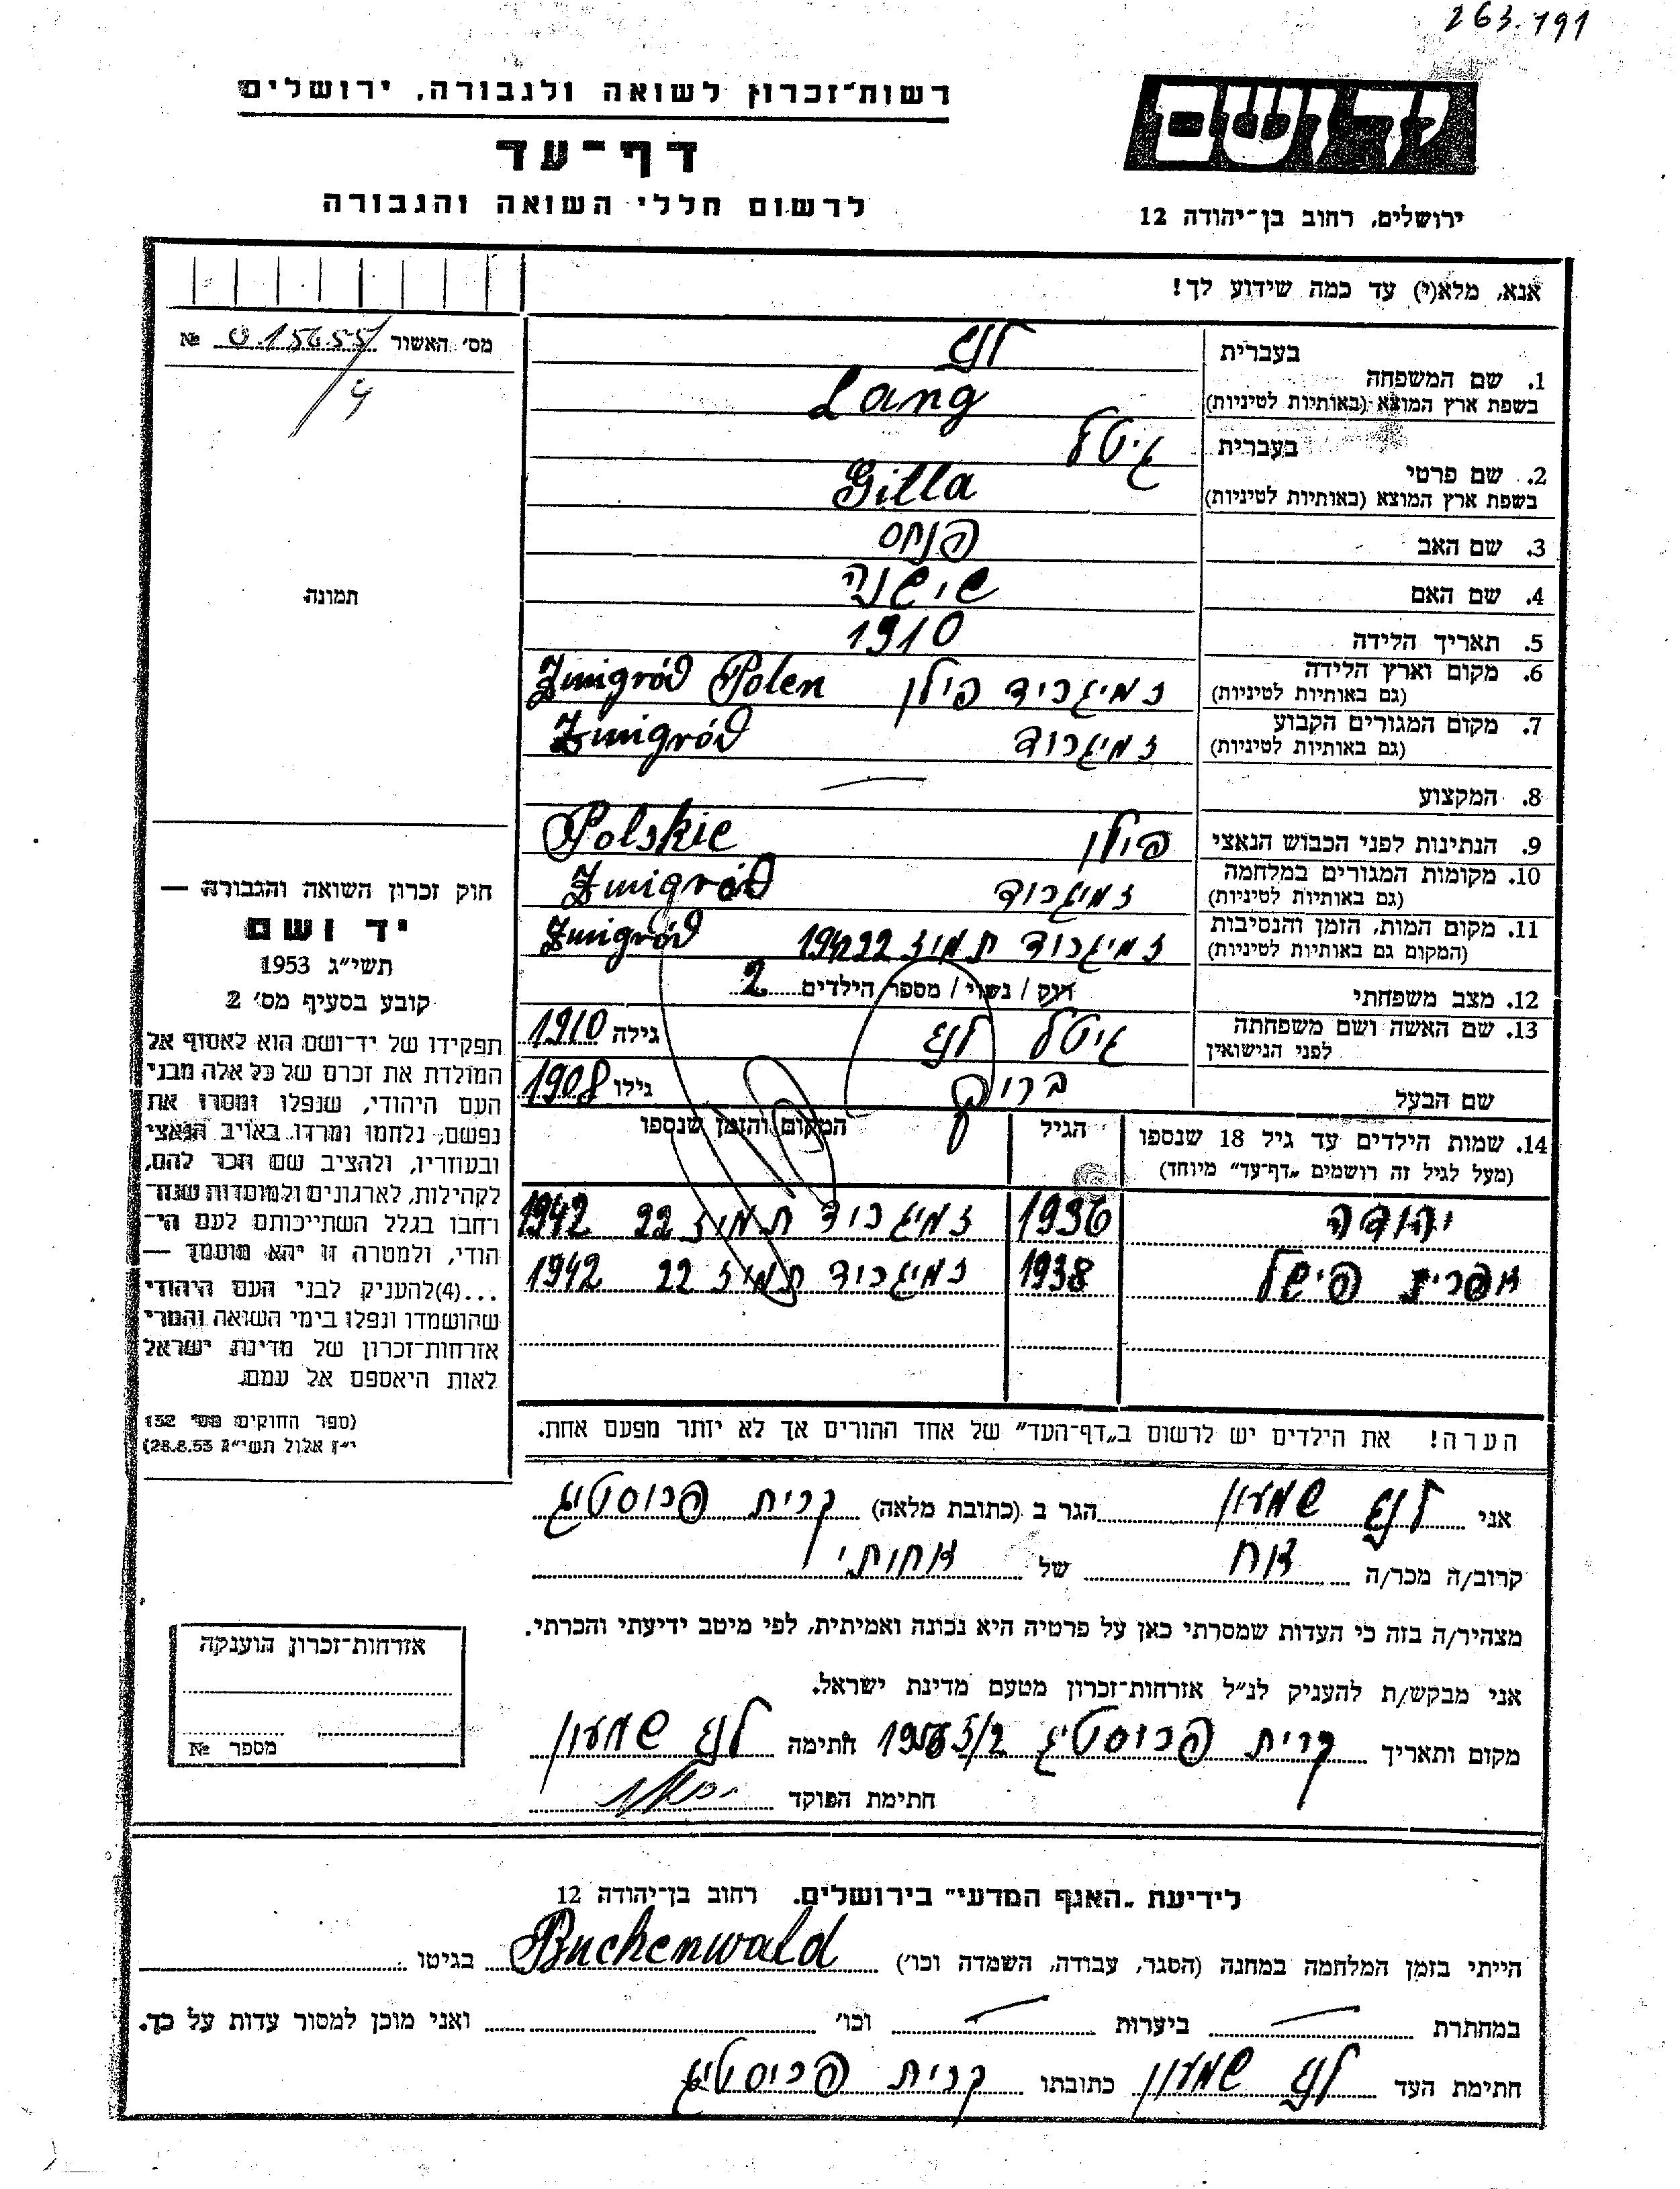 263.191
רשות־זכרון לשואה ולגבורה, ירושלים
יד ושם
דף־עד
לרשום חללי השואה והגבורה
ירושלים, רחוב בן־יהודה 12
אנא, מלא(י) עד כמה שידוע לך!
מס׳ האשור 015655 №
4
בעברית לנג
1. שם המשפחה
בשפת ארץ המוצא (באותיות לטיניות) Lang
בעברית גיטל
2. שם פרטי
בשפת ארץ המוצא (באותיות לטיניות) Gitla
3. שם האב פנחס
4. שם האם
תמונה
5. תאריך הלידה 1910
6. מקום וארץ הלידה
(גם באותיות לטיניות) זמיגריד פולן Zmigród Polen
7. מקום המגורים הקבוע
(גם באותיות לטיניות) זמיגרוד Zmigród
8. המקצוע —
9. הנתינות לפני הכבוש הנאצי פולן Polskie
10. מקומות המגורים במלחמה
(גם באותיות לטיניות) זמיגרוד Zmigród
11. מקום המות, הזמן והנסיבות
(המקום גם באותיות לטיניות) זמיגרוד תמוז 22 194 Zmigród
12. מצב משפחתי רוק / נשוי / מספר הילדים 2
13. שם האשה ושם משפחתה
לפני הנישואין גיטל לנג גילה 1910
שם הבעל ברוך גילו 1908
14. שמות הילדים עד גיל 18 שנספו
(מעל לגיל זה רושמים „דף־עד״ מיוחד)
הגיל
המקום והזמן שנספו
יהודה 1936 זמיגרוד תמוז 22 1942
אפרים פישל 1938 זמיגרוד תמוז 22 1942
חוק זכרון השואה והגבורה —
יד ושם
תשי״ג 1953
קובע בסעיף מס׳ 2
תפקידו של יד־ושם הוא לאסוף אל
המולדת את זכרם של כל אלה מבני
העם היהודי, שנפלו ומסרו את
נפשם, נלחמו ומרדו באויב הנאצי
ובעוזריו, ולהציב שם וזכר להם,
לקהילות, לארגונים ולמוסדות שנח־
רחבו בגלל השתייכותם לעם הי־
הודי, ולמטרה זו יהא מוסמך —
...(4)להעניק לבני העם היהודי
שהושמדו ונפלו בימי השואה והמרי
אזרחות־זכרון של מדינת ישראל
לאות היאספם אל עמם.
(ספר החוקים מס׳ 132
י״ז אלול תשי״ג 28.8.53)
הערה! את הילדים יש לרשום ב„דף־העד״ של אחד ההורים אך לא יותר מפעם אחת.
אני לנג שמעון הגר ב (כתובת מלאה) קרית פרוסטיג
קרוב/ה מכר/ה אח של אחותי
מצהיר/ה בזה כי העדות שמסרתי כאן על פרטיה היא נכונה ואמיתית, לפי מיטב ידיעתי והכרתי.
אני מבקש/ת להעניק לנ״ל אזרחות־זכרון מטעם מדינת ישראל.
מקום ותאריך קרית פרוסטיג חתימה לנג שמעון
חתימת הפוקד
אזרחות־זכרון הוענקה
מספר №
לידיעת „האגף המדעי״ בירושלים, רחוב בן־יהודה 12
הייתי בזמן המלחמה במחנה (הסגר, עבודה, השמדה וכו׳) Buchenwald בגיטו
במחתרת — ביערות — וכו׳ ואני מוכן למסור עדות על כך.
חתימת העד לנג שמעון כתובתו קרית פרוסטיג